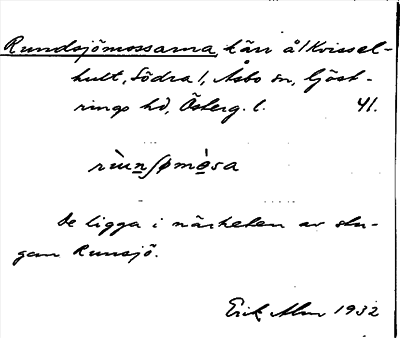 Rundsjömossarna, kärr å /Krissel-
hult, Södra /, Åsbo sn, Göst-
rings hd, Österg. l. 41.
rùnʃømò̱sa
De ligga i närheten av stu-
gan Runsjö.
Erik Alm 1932